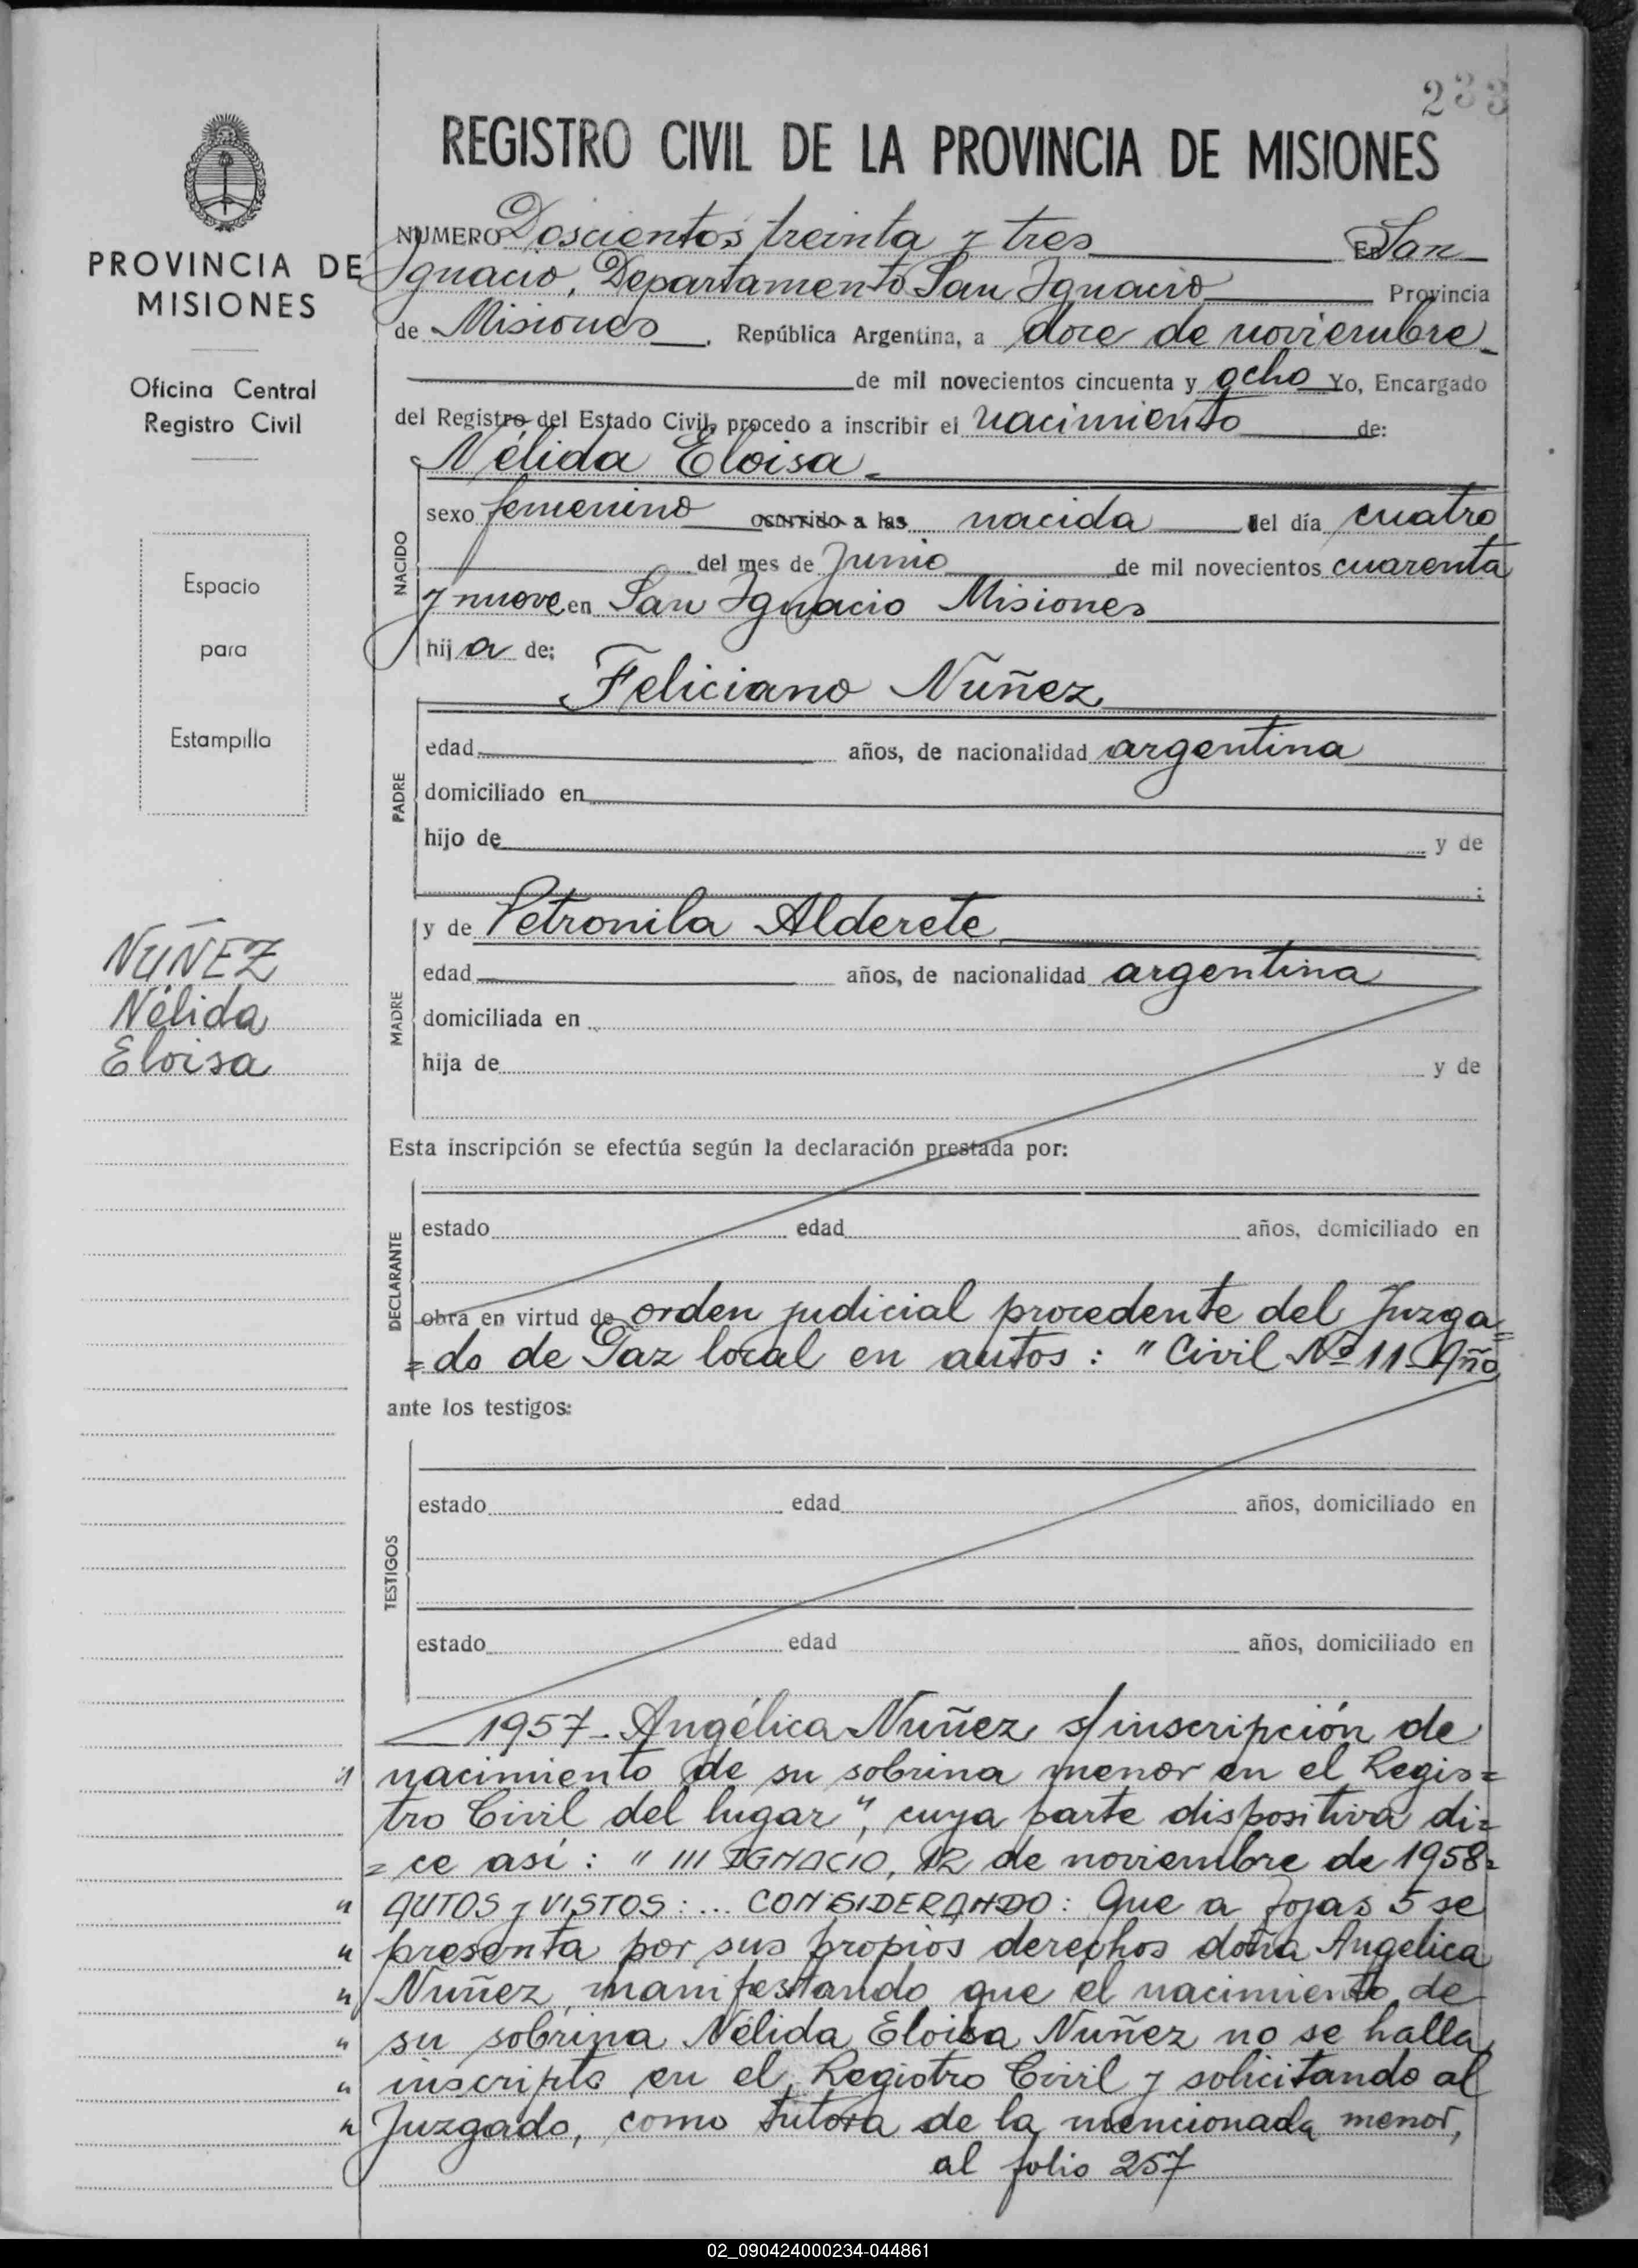 233
REGISTRO CIVIL DE LA PROVINCIA DE MISIONES
PROVINCIA DE
MISIONES
Oficina Central
Registro Civil
Espacio
para
Estampilla
NUÑEZ
Nélida
Eloisa
NUMERO Doscientos treinta y tres En San
Ignacio, Departamento San Ignacio Provincia
de Misiones, República Argentina, a doce de noviembre
de mil novecientos cincuenta y ocho Yo, Encargado
del Registro del Estado Civil, procedo a inscribir el nacimiento de:
Nélida Eloisa
NACIDO
sexo femenino ocurrido a las nacida del día cuatro
del mes de Junio de mil novecientos cuarenta
y nueve en San Ignacio Misiones
hija de:
Feliciano Nuñez
PADRE
edad años, de nacionalidad argentina
domiciliado en
hijo de y de
;
y de Petronila Alderete
MADRE
edad años, de nacionalidad argentina
domiciliada en
hija de y de
Esta inscripción se efectúa según la declaración prestada por:
DECLARANTE
estado edad años, domiciliado en
obra en virtud de orden judicial procedente del Juzga=
=do de Paz local en autos: "Civil Nº 11 Año
ante los testigos:
TESTIGOS
estado edad años, domiciliado en
estado edad años, domiciliado en
1957 - Angélica Nuñez s/inscripción de
" nacimiento de su sobrina menor en el Regis=
tro Civil del lugar", cuya parte dispositiva di=
=ce asi: " /// IGNACIO, 12 de noviembre de 1958=
" AUTOS y VISTOS: ... CONSIDERANDO: Que a fojas 5 se
" presenta por sus propios derechos doña Angelica
" Nuñez manifestando que el nacimiento de
" su sobrina Nélida Eloisa Nuñez no se halla
" inscripto en el Registro Civil y solicitando al
" Juzgado, como tutora de la mencionada menor,
al folio 257
02_090424000234-044861